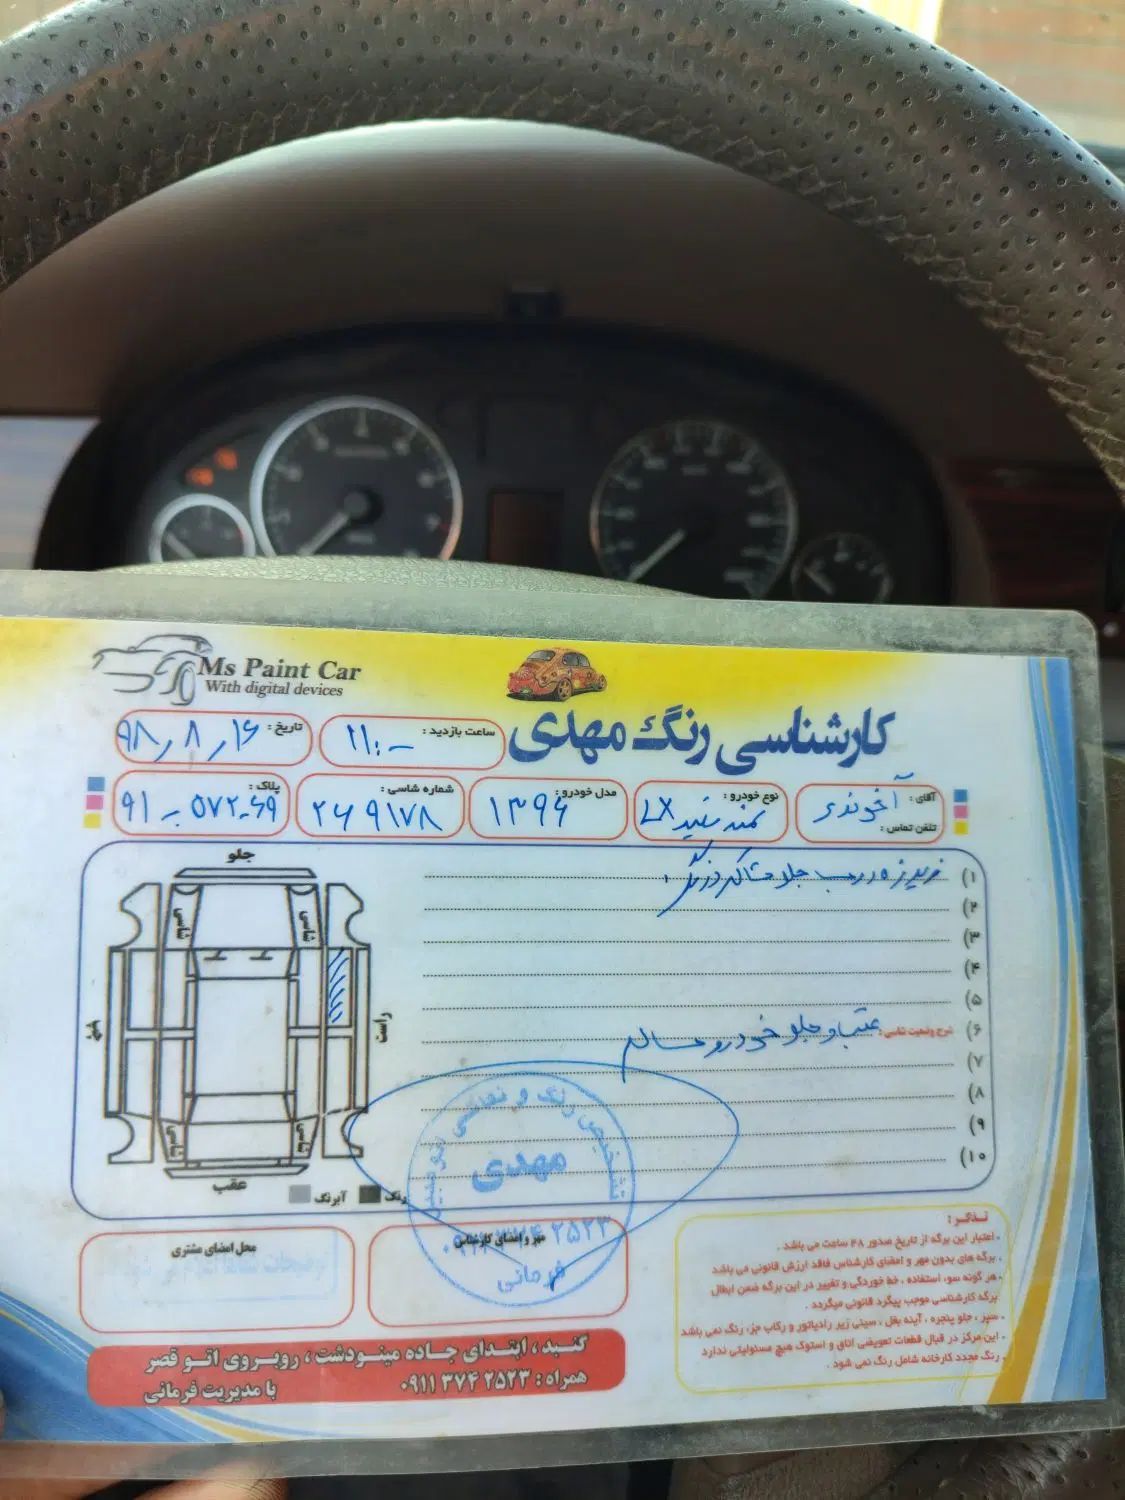 Ms Paint Car
With digital devices
کارشناسی رنگ مهدی
ساعت بازدید : ۱۱:-
تاریخ : ۹۸٫۸٫۱۶
آقای : آخوندی
تلفن تماس :
نوع خودرو : سمند سفید LX
مدل خودرو : ۱۳۹۶
شماره شاسی : ۲۶۹۱۷۸
پلاک :
جلو
شاسی
شاسی
راست
چپ
شاسی
شاسی
عقب
رنگ
آبرنگ
۱) جلو
۲)
۳)
۴)
۵)
۶) شرح وضعیت شاسی : عقب و جلو خودرو سالم
۷)
۸)
۹)
۱۰)
مهدی
فرمانی
محل امضای مشتری
مهر و امضای کارشناس
تذکر :
اعتبار این برگه از تاریخ صدور ۴۸ ساعت می باشد .
برگه های بدون مهر و امضای کارشناس فاقد ارزش قانونی می باشد
هر گونه سوء استفاده ، خط خوردگی و تغییر در این برگه ضمن ابطال
برگه کارشناسی موجب پیگرد قانونی میگردد .
سپر ، جلو پنجره ، آینه بغل ، سینی زیر رادیاتور و رکاب جزء رنگ نمی باشد
این مرکز در قبال قطعات تعویضی اتاق و استوک هیچ مسئولیتی ندارد
رنگ مجدد کارخانه شامل رنگ نمی شود .
گنبد ، ابتدای جاده مینودشت ، روبروی اتو قصر
همراه : ۰۹۱۱ ۳۷۴ ۲۵۲۳
با مدیریت فرمانی